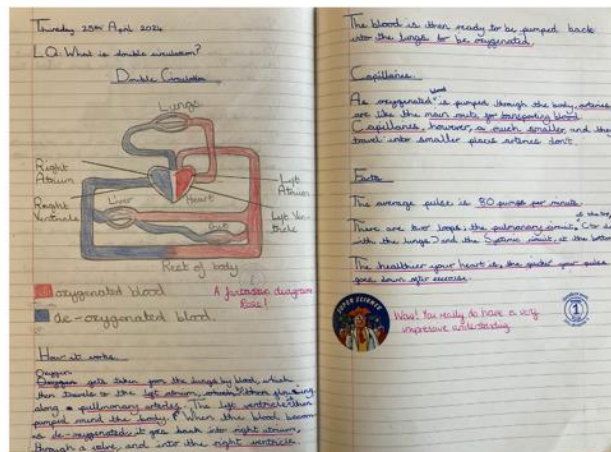 Thursday 25th April 2024
LQ: What is double circulation?
Double Circulation
Lungs
Right Atrium
Left Atrium
Liver
Heart
Right Ventricle
Left Ventricle
Gut
Rest of body
oxygenated blood
A fantastic diagram
Rose!
de-oxygenated blood.
How it works
Oxygen
gets taken from the lungs by blood, which
then travels to the left atrium, then
along pullmonary arteries. The left ventricle then
pumped round the body. When the blood becom-
es de-oxygenated it goes back into right atrium,
through a valve, and into the right ventricle.
The blood is then ready to be pumped back
into the lungs to be oxygenated.
Capillaries
blood
As oxygenated is pumped through the body, arteries
are like the main route for transporting blood.
Capillaries, however, a much smaller and they
travel into smaller places arteries don't.
Facts
The average pulse is 80 pumps per minute.
at the top
There are two loops; the pulmonary circuit,
with the lungs) and the Systemic circuit, at the bottom
The healthier your heart is, the quicker your pulse
goes down after exercise.
SUPER SCIENCE
Wow! You really do have a very
impressive understanding
1